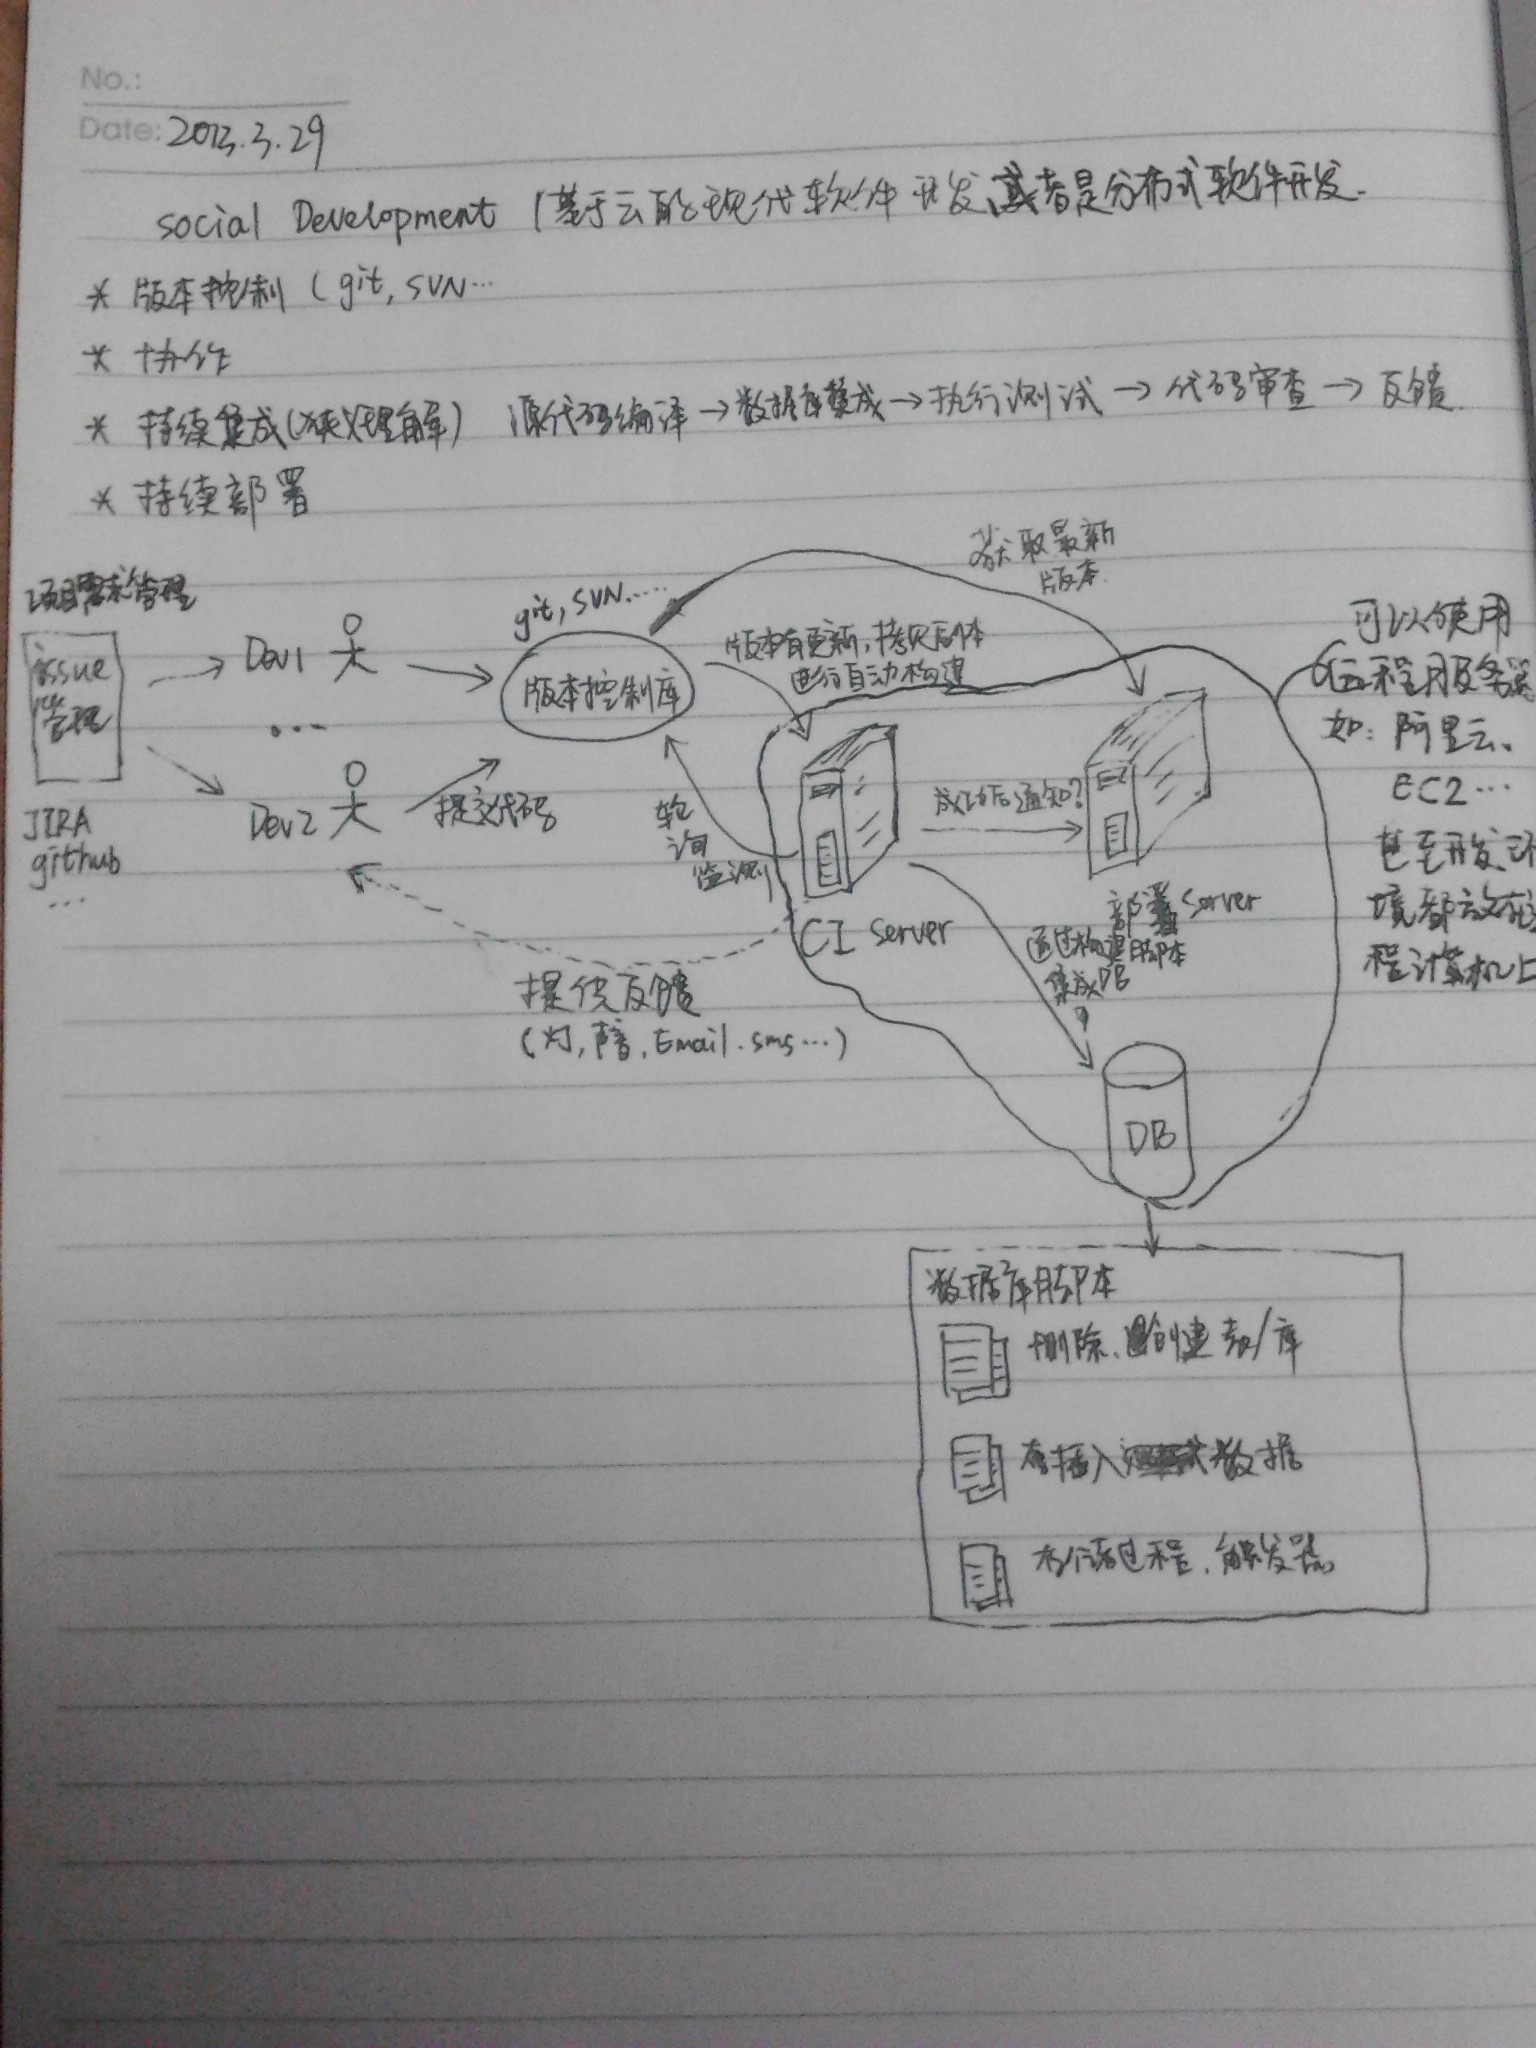 No.:
Date: 2013.3.29
social Development (基于云的现代软件开发,或者是分布式软件开发.
* 版本控制 (git, SVN...
* 协作
* 持续集成(狭义理解) 源代码编译→数据库集成→执行测试→代码审查→反馈
* 持续部署
获取最新
版本.
项目需求管理
issue
管理
JIRA
github
...
Dev1
...
Dev2
提交代码
git, SVN.....
版本控制库
版本有更新,拷贝后本
进行自动构建
轮
询
监测
CI Server
成功后通知?
部署 Server
通过构建脚本
集成DB
提供反馈
(灯,声音,Email.sms...)
可以使用
远程服务器
如:阿里云、
EC2...
甚至开发环
境都放在远
程计算机上
DB
数据库脚本
删除、创建表/库
插入 数据
存储过程,触发器